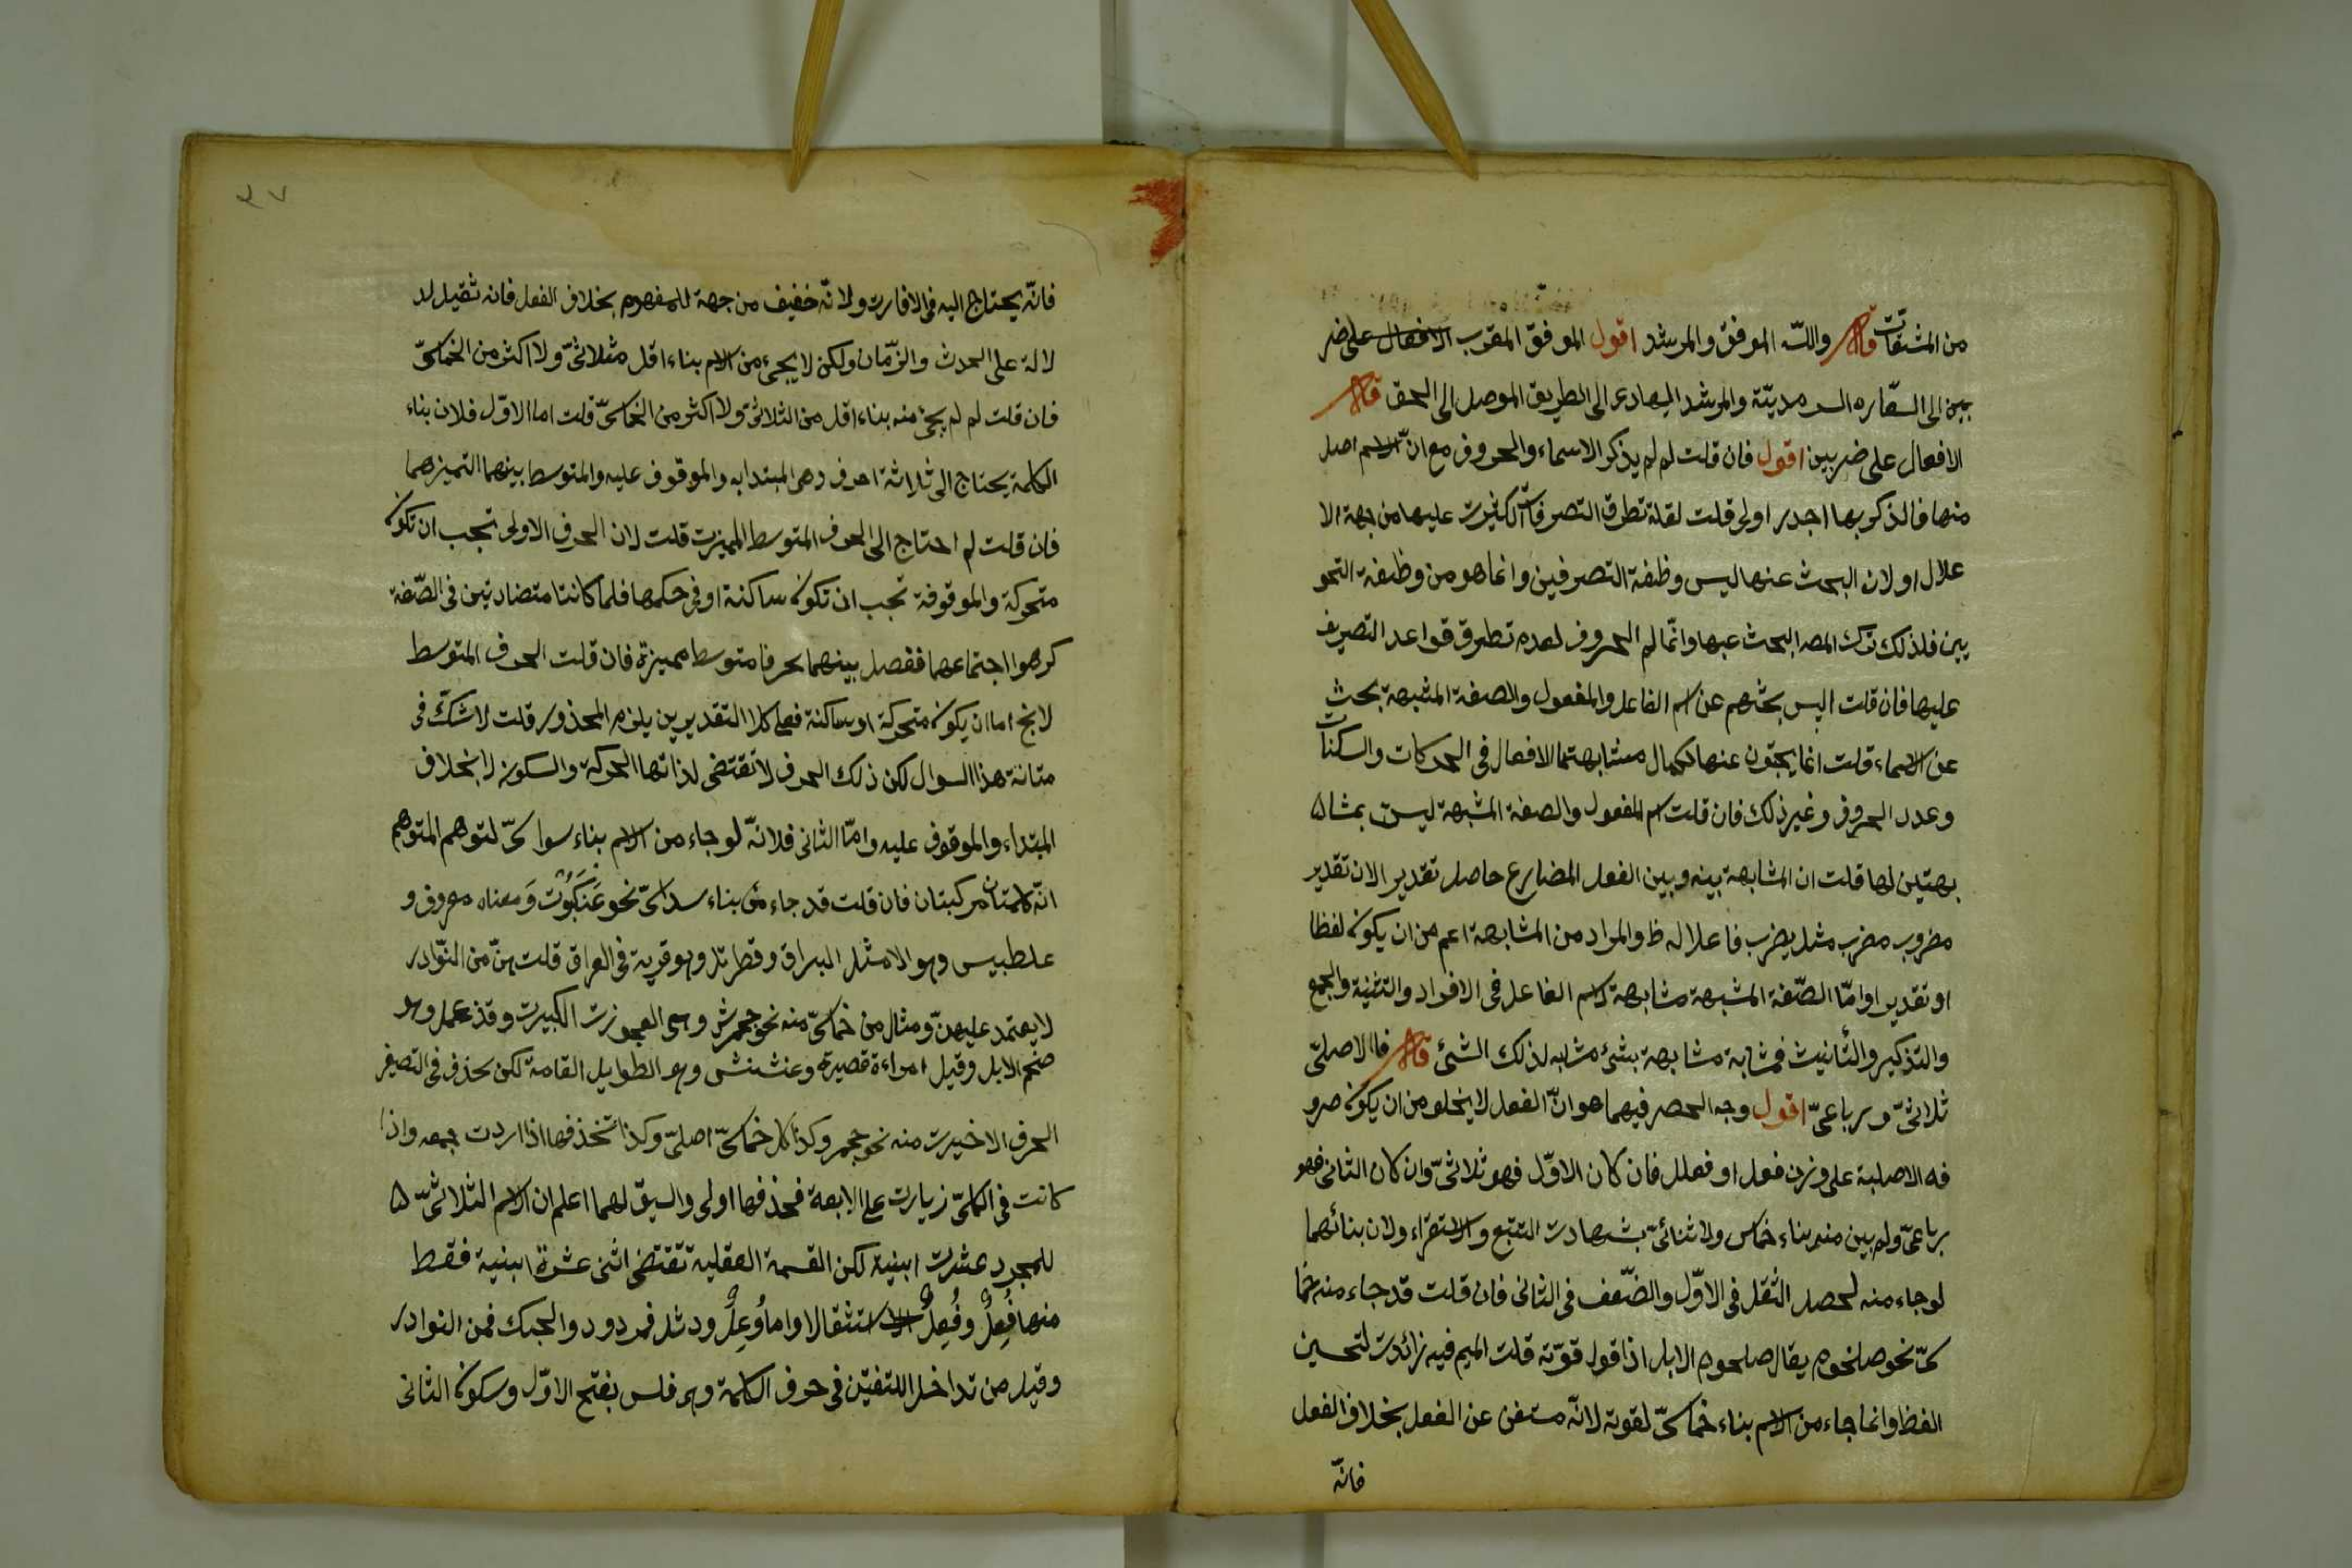 من المشتقات قال والله الموفق والمرشد اقول الموفق المقرب الافعال على ضر
بين الى السعاره السرمديّة والمرشد الهادى الى الطريق الموصل الى الحق قال
الافعال على ضربين اقول فان قلت لم لم يذكر الاسماء والحروف مع انّ الاسم اصل
منها فالذكر بها اجدر اولى قلت لقلة تطرق التصرفات الكثيرت عليها من جهة الا
علال او لان البحث عنها ليس وظيفة التصرفين وانما هو من وظيفة النحو
يين فلذلك ترك المصـ البحث عنها وانّما لم الحروف لعدم تطرق قواعد التصريف
عليها فان قلت اليس بحثهم عن اسم الفاعل والمفعول والصفة المشبهة بحث
عن الاسماء قلت انما يبحثون عنها لكمال مشابهتها الافعال فى الحركات والسكنات
وعدد الحروف وغير ذلك فان قلت اسم المفعول والصفة المشبهة ليست بمشا
بهتين لها قلت ان المشابهة بينه وبين الفعل المضارع حاصل تقدير الان تقدير
مضروب مضرب مثل يضرب فاعلاله ظ والمراد من المشابهة اعم من ان يكون لفظا
او تقديرا وامّا الصّفة المشبهة مشابهة لاسم الفاعل فى الافراد والتثنية والجمع
والتذكير والتأنيث فمشابة مشابهة بشئ مشابه لذلك الشئ قال فاالاصلىّ
ثلاثىّ ورباعىّ اقول وجه الحصر فيهما هو انّ الفعل لا يخلو من ان يكون حرو
فه الاصلية على وزن فعل او فعلل فان كان الاوّل فهو ثلاثىّ وان كان الثانى فهو
رباعىّ ولم يبن منه بناء خماس ولا ثنائىّ بشهادت التتبع والاستقراء ولان بنائهما
لو جاء منه لحصل الثقل فى الاوّل والضّعف فى الثانى فان قلت قد جاء منه خما
سىّ نحو صلخوم يقال صلحوم الابل اذا قول قوّته قلت الميم فيه زائدت لتحسين
الفظ وانما جاء من الاسم بناء خماسىّ لقوته لانّه مستغن عن الفعل بخلاف الفعل
فانّه
٣٧
فانّه يحتاج اليه فى الافارت ولانّه خفيف من جهة للمفهوم بخلاف الفعل فانه ثقيل لد
لالة على الحدث والزّمان ولكن لا يجىء من الاسم بناء اقل من ثلاثىّ ولا اكثر من الخماسىّ
فان قلت لم لم يجئ منه بناء اقل من الثلاثىّ ولا اكثر من الخماسىّ قلت اما الاوّل فلان بناء
الكلمة يحتاج الى ثلاثة احرف وهى المبتدا به والموقوف عليه والمتوسط بينهما التميزهما
فان قلت لم احتاج الى الحرف المتوسط المميزت قلت لان الحرف الاولى تجب ان تكون
متحركة والموقوفة تجب ان تكون ساكنة او فى حكمها فلما كانتا متضادتين فى الصّفة
كرهوا اجتماعهما ففصل بينهما بحرفا متوسط مميزة فان قلت الحرف المتوسط
لا يخ اما ان يكون متحركة او ساكنة فعلى كلا التقديرين يلزم المحذور قلت لا شكّ فى
متانة هذا السوال لكن ذلك الحرف لا تقتضى لذاتها الحركة والسكون لا بخلاف
المبتداء والموقوف عليه وامّا الثانى فلانّه لو جاء من الاسم بناء سداسىّ لتوهم المتوهم
انّه كلمتان مركبتان فان قلت قد جاء من بناء سداسىّ نحو عَنْكَبُوت وَمعناه معروف و
علطبيس وهو الامثل البراق وقطربّل وهو قرية فى العراق قلت هنّ من النّوادر
لا يعتمد عليهنّ ومثال من خماسىّ منه نحو جحمرش وهى العجوزت الكبيرت وقذعمل وهو
ضخم الابل وقيل امراءة قصيرة وعنشنش وهو الطوايل القامة لكن يحذف فى التصغير
الحرف الاخيرت منه نحو جحمر وكذا كل خماسىّ اصلىّ وكذا تحذفها اذا اردت جمعه واذا
كانت فى الكلمىّ زيارت على الابعة فحذفها اولى واليق لهما اعلم ان الاسم الثلاثىّ
للمجرد عشرت ابنية لكن القسمة العقلية تقتضى اثنى عشرة ابنية فقسط
منها فِعُلٌ وفُعِلٌ الا استثقالا واما وُعِلٌ ودئل فمردود والحبك فمن النوادر
وقيل من تداخل اللتغتين فى حرف الكلمة وهو فلس بفتح الاوّل وسكون الثانى